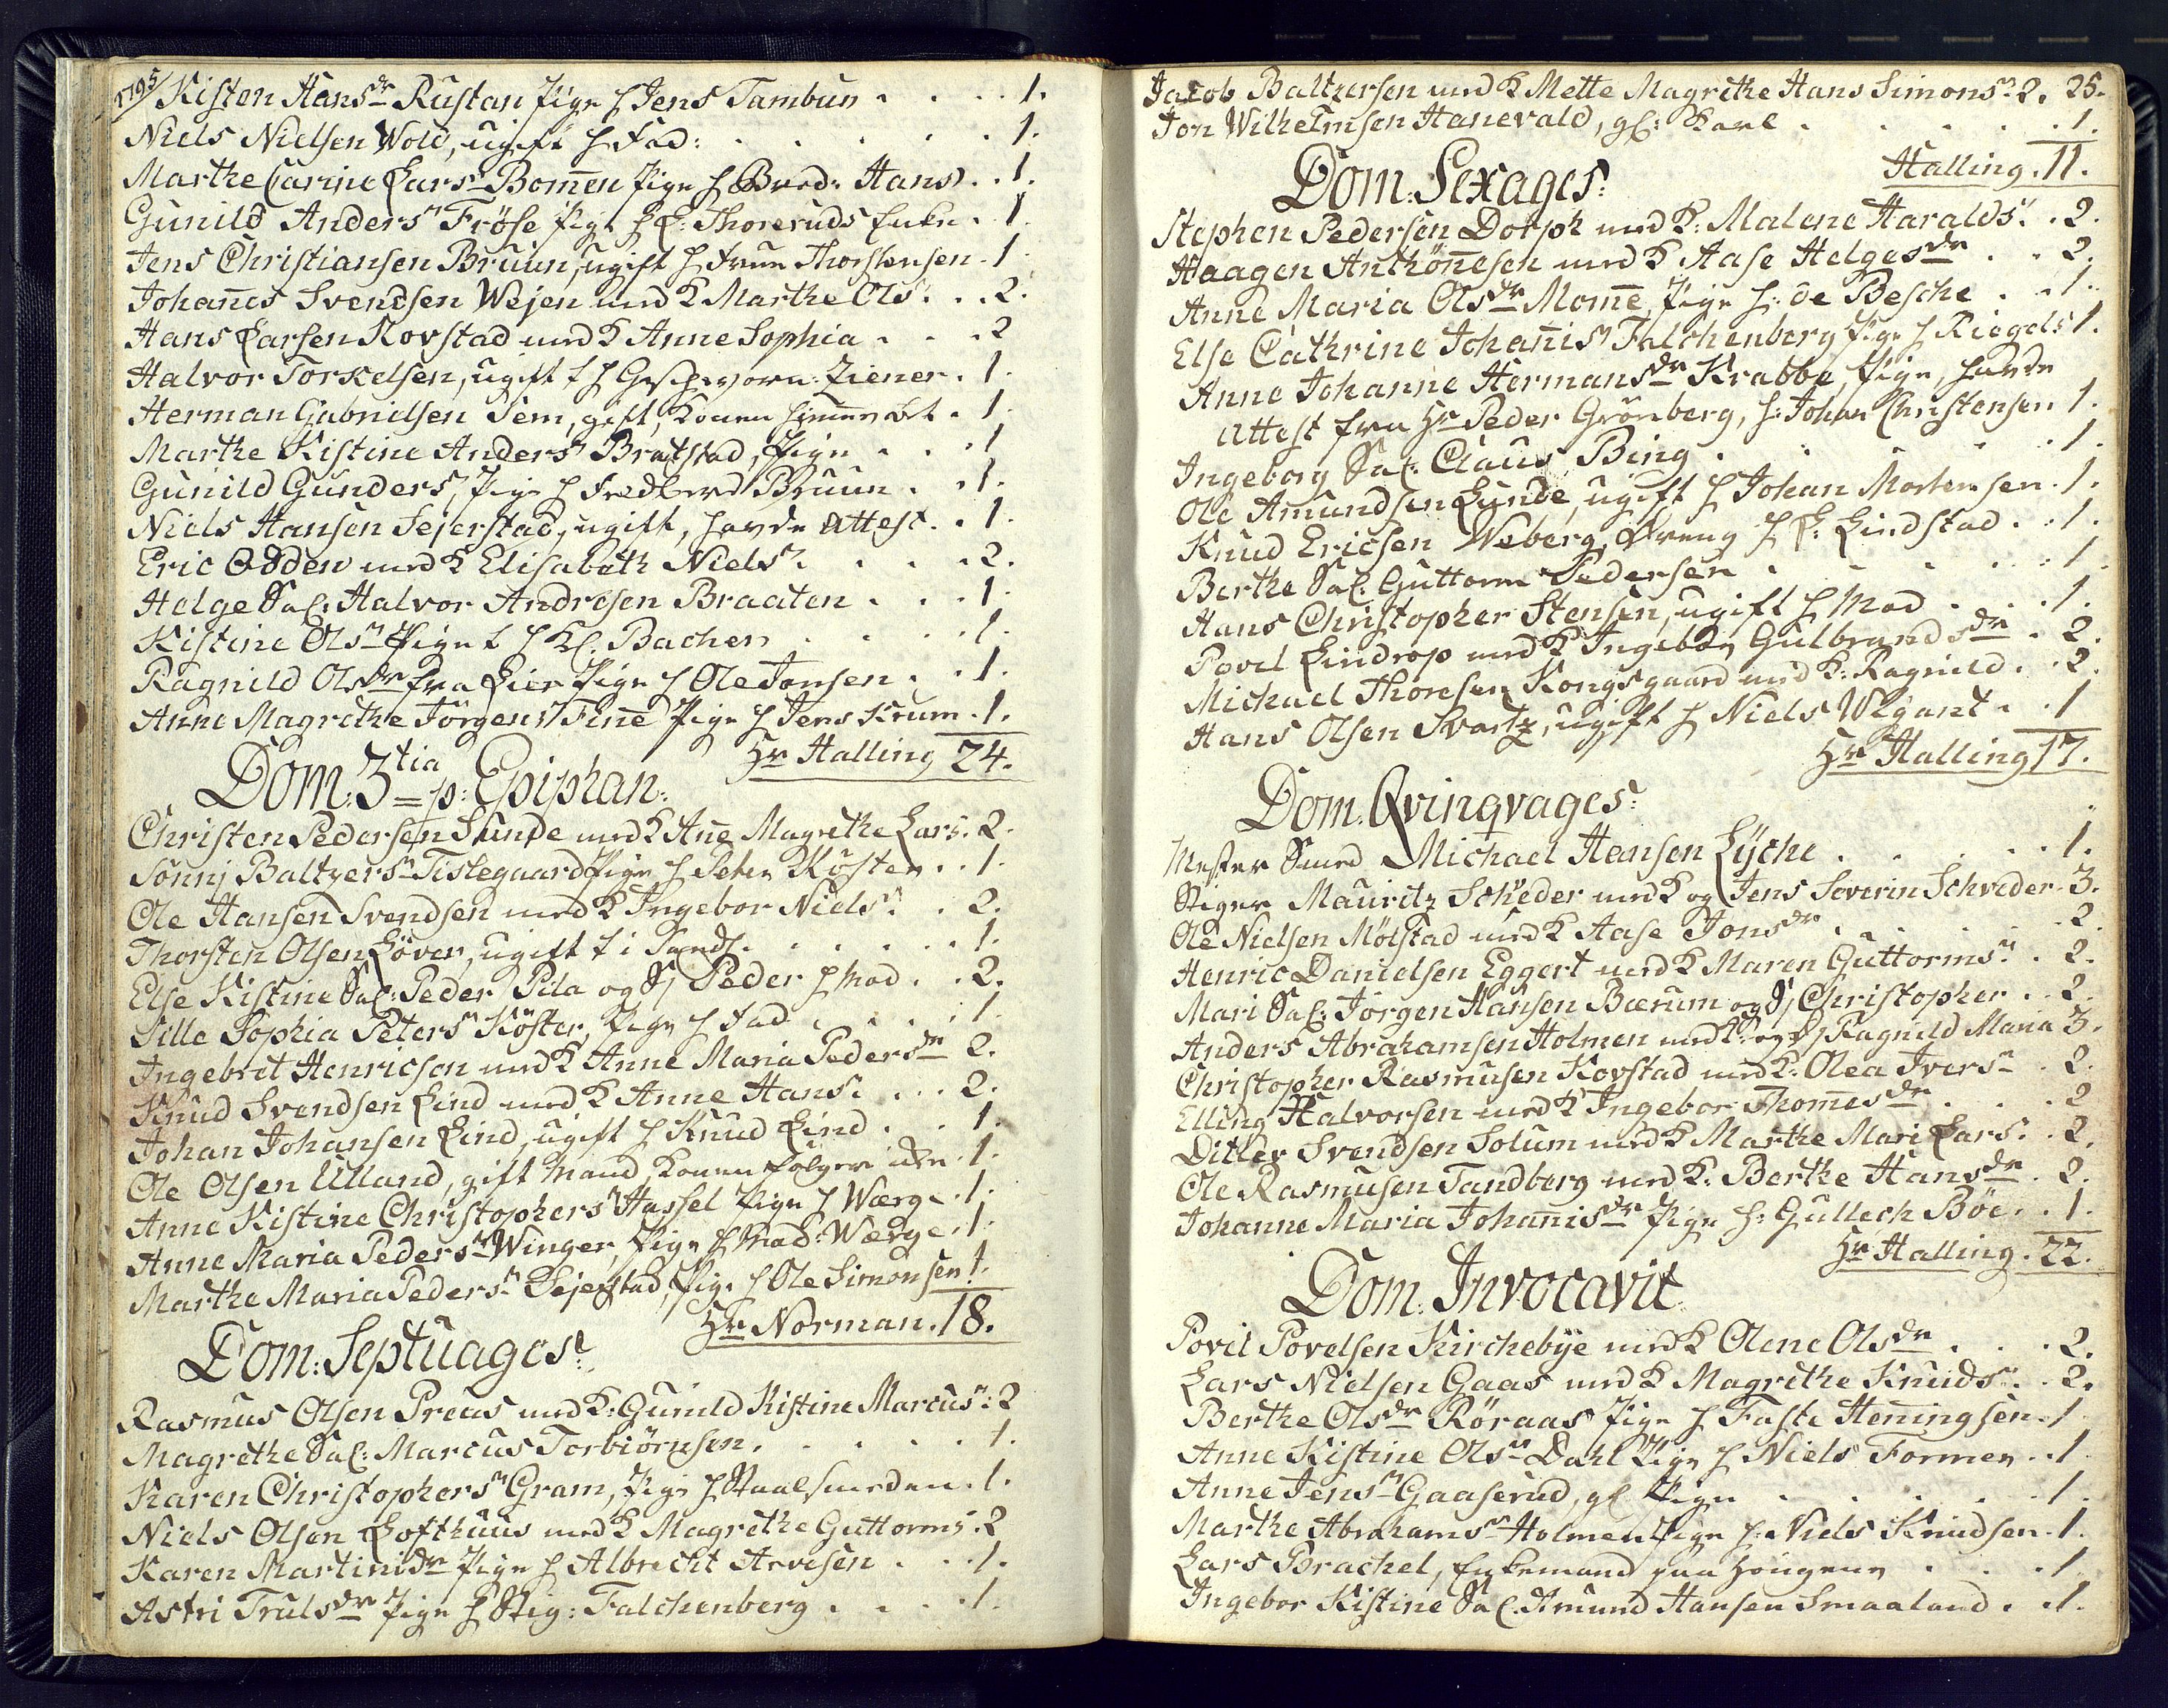 1795/ Kisten Hansdr Rustan Pige h Jens Tambur . . . 1.
Niels Nielsen Wold, ugift h Fad: . . . . . 1.
Marthe Carine Larsr Bomen Pige h Brod: Hans . . 1.
Gunild Andersr Fröse Pige h L: Thoreruds Enke . 1.
Jens Christiansen Bruun, ugift h Thorstensen . 1.
Johanes Svendsen Wejen med K Marthe Olsr . . 2.
Hans Larsen Kovstad med K Anne Sophia . . . 2
Halvor Torkelsen, ugift f h Geschworn: Ziener . 1.
Herman Gabrielsen Sem, gift, Konen . 1.
Marthe Kistine Andersr Bratstad, Pige . . . 1
Gunild Gundersr, Pige h Bruun . . 1.
Niels Hansen Sejerstad, ugift, havde Attest . . 1.
Eric Odden med K Elisabeth Nielsr . . . . 2.
Helge Sal: Halvor Andresen Braaten . . . 1.
Kistine Olsr Pige f h Kl. Bacher . . . . 1.
Ragnild Olsdr fra Lier Pige h Ole Jonsen . . 1.
Anne Magrethe Jörgensr Finne Pige h Jens Krum . 1.
Hr Halling 24.
Dom: 3tia p: Epiphan:
Christen Pedersen Sunde med K Ane Magrethe Lars. 2.
Sönnj Baltzersr Tistegaard Pige h Peter Köster . . 1.
Ole Hansen Svendsen med K Ingebor Nielsr . . 2.
Thorsten Olsen Löver, ugift f i . . . . 1.
Else Kistine Sal: Peder Pila og S/ Peder h Mod . . 2.
Sille Sophia Petersr Köster, Pige h Fad . . . 1
Ingebret Henricsen med K Anne Maria Pedersdr 2.
Knud Svendsen Lind med K Anne Hansr . . . 2.
Johan Johansen Lind, ugift h Knud Lind . . . 1.
Ole Olsen Ulland, gift Mand, Konen fölger . 1.
Anne Kistine Christophersr Hassel Pige h Wærge . 1.
Anne Maria Pedersr Winger, Pige h Mad: Wærge . 1.
Marthe Maria Pedersr Sejerstad, Pige h Ole Simonsen 1.
Hr Norman . 18.
Dom: Septuages:
Rasmus Olsen Preus med K: Gunild Kistine Marcusr: 2
Magrethe Sal: Marcus Torbiörnsen . . . . . 1.
Karen Christophersr Gram, Pige h Staalsmeden . 1.
Niels Olsen Lofthuus med K Magrethe Guttorms . 2
Karen Martinisdr Pige h Albrecht Arvesen . . . 1.
Astri Trulsdr Pige h Stig: Falchenberg . . . . 1.
Jacob Baltzersen med K Mette Magrethe Hans Simonsr 2. 25.
Jon Wilhelmsen Hanevald, gl: Karl . . . . . 1.
Halling . 11.
Dom: Sexages:
Stephen Pedersen Dorph med K: Malene Haraldsr . 2.
Haagen Anthönesen med K Aase Helgesdr . . 2.
Anne Maria Olsdr Mome, Pige h: de Besche . . 1.
Else Cathrine Johanisr Falchenberg Pige h Riegels 1.
Anne Johanne Hermansdr Krabbe, Pige, havde
Attest fra Hr Peder Grönberg, h: Johan Christensen 1.
Ingeborg Sal: Claus Bing . . . . . 1.
Ole Amundsen Lunde, ugift h Johan Mortensen . 1.
Knud Ericsen Weberg, Dreng h L: Lindstad . . 1.
Berthe Sal: Guttorm Pedersen . . . . . 1.
Hans Christopher Stensen, ugift h Mod . . . 1.
Povel Lindrop med K Ingebor Gulbrandsdr . 2.
Michael Thoresen Kongsgaard med K: Ragnild . . 2.
Hans Olsen Svartz, ugift h Niels Wigant . . 1
Hr Halling 17.
Dom. Qvinqvages:
Mester Smed Michael Hansen Lÿche . . . . . 1.
Stiger Mauritz Schrøder med K og Jens Severin Schrøder . 3.
Ole Nielsen Mölstad med K Aase Jonsdr . . . . . 2.
Henric Danielsen Eggert med K Maren Guttormsr . 2.
Mari Sal: Jörgen Hansen Bærum og S/ Christopher . . 2.
Anders Abrahamsen Holmen med K: og D/ Ragnild Maria 3.
Christopher Rasmusen Kovstad med K: Olea Iversr . 2.
Elling Halvorsen med K Ingebor Thomesdr . . . 2
Ditlev Svendsen Solum med K Marthe Mari Larsr . 2.
Ole Rasmusen Tandberg med K: Berthe Hansdr . 2.
Johanne Maria Johanisdr Pige h: Gullech Böe . . 1.
Hr Halling . 22.
Dom: Invocavit
Povel Povelsen Kirchebÿe med K Olene Olsdr . . . 2.
Lars Nielsen Gaas med K Magrethe Knudsr . . 2.
Berthe Olsdr Röraas Pige h Faste Heningsen . 1
Anne Kistine Olsr Dahl Pige h Niels Former . . 1
Anne Jensr Gaaserud, gl Pige . . . . . 1.
Marthe Abrahamsr Holmen Pige h: Niels Knudsen . 1.
Lars Brachel, Enkemand paa Hougene . . . 1.
Ingebor Kistine Sal: Amund Hansen Smaaland . . 1.